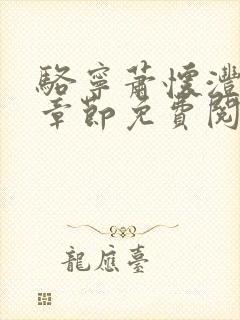 駱寧蕭懷灃
章節免費閱
龍應臺